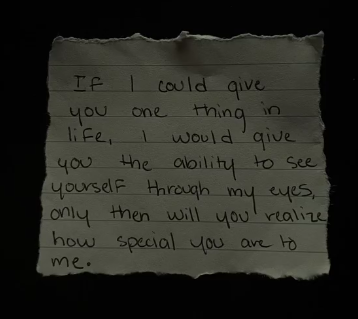 If I could give
you one thing in
life, I would give
you the ability to see
yourself through my eyes,
only then will you realize
how special you are to
me.